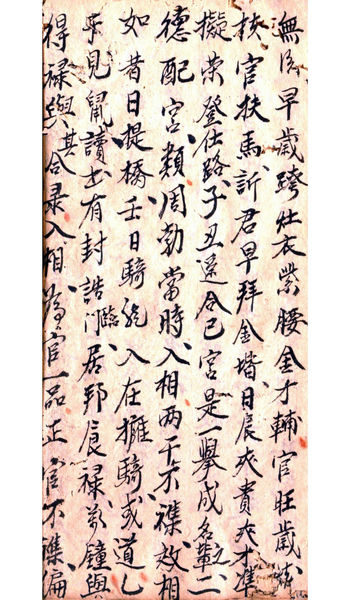 無 早歲跨仕衣紫腰金才輔官旺歲
扶官扶馬訢君早拜金堦日辰夾貴夾才準
擬榮登仕路子丑遥合巳宮是一舉成名之輩二
德配宮類周勃當時入相兩干不襍效相
如昔日提橋壬日騎 入在擁騎或道乙
干見鼠讀出有封誥臨門居邦食禄萬鐘與
得禄與其合录入相為官一品正官不襍偏